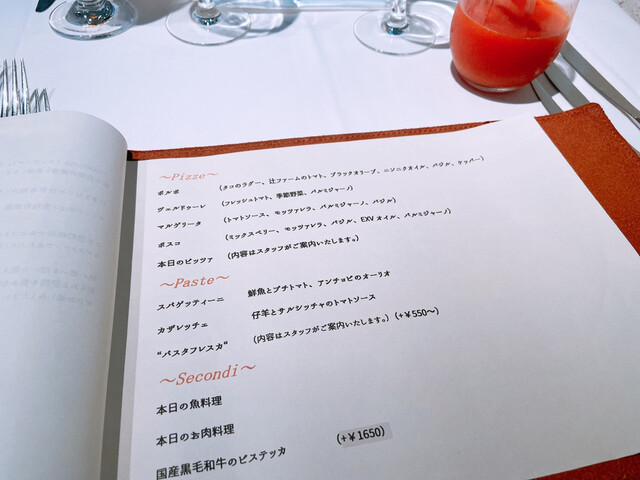 ～Pizze～
ポルポ （タコのラグー、辻ファームのトマト、ブラックオリーブ、ニンニクオイル、バジル、ケッパー）
ヴェルドゥーレ （フレッシュトマト、季節野菜、パルミジャーノ）
マルゲリータ （トマトソース、モッツァレラ、パルミジャーノ、バジル）
ボスコ （ミックスベリー、モッツァレラ、バジル、EXVオイル、パルミジャーノ）
本日のピッツァ （内容はスタッフがご案内いたします。）
～Paste～
スパゲッティーニ 鮮魚とプチトマト、アンチョビのオーリオ
カザレッチェ 仔羊とサルシッチャのトマトソース
“パスタフレスカ” （内容はスタッフがご案内いたします。）（+￥550～）
～Secondi～
本日の魚料理
本日のお肉料理
国産黒毛和牛のビステッカ （+￥1650）